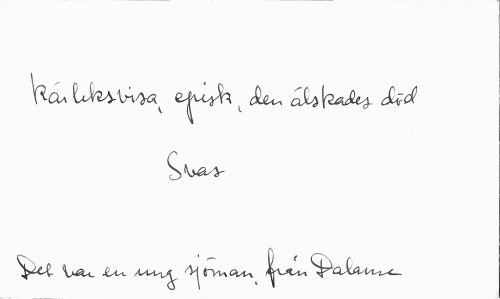 Kärleksvisa, episk, den älskades död
Svas
Det var en ung sjöman, från Dalarne